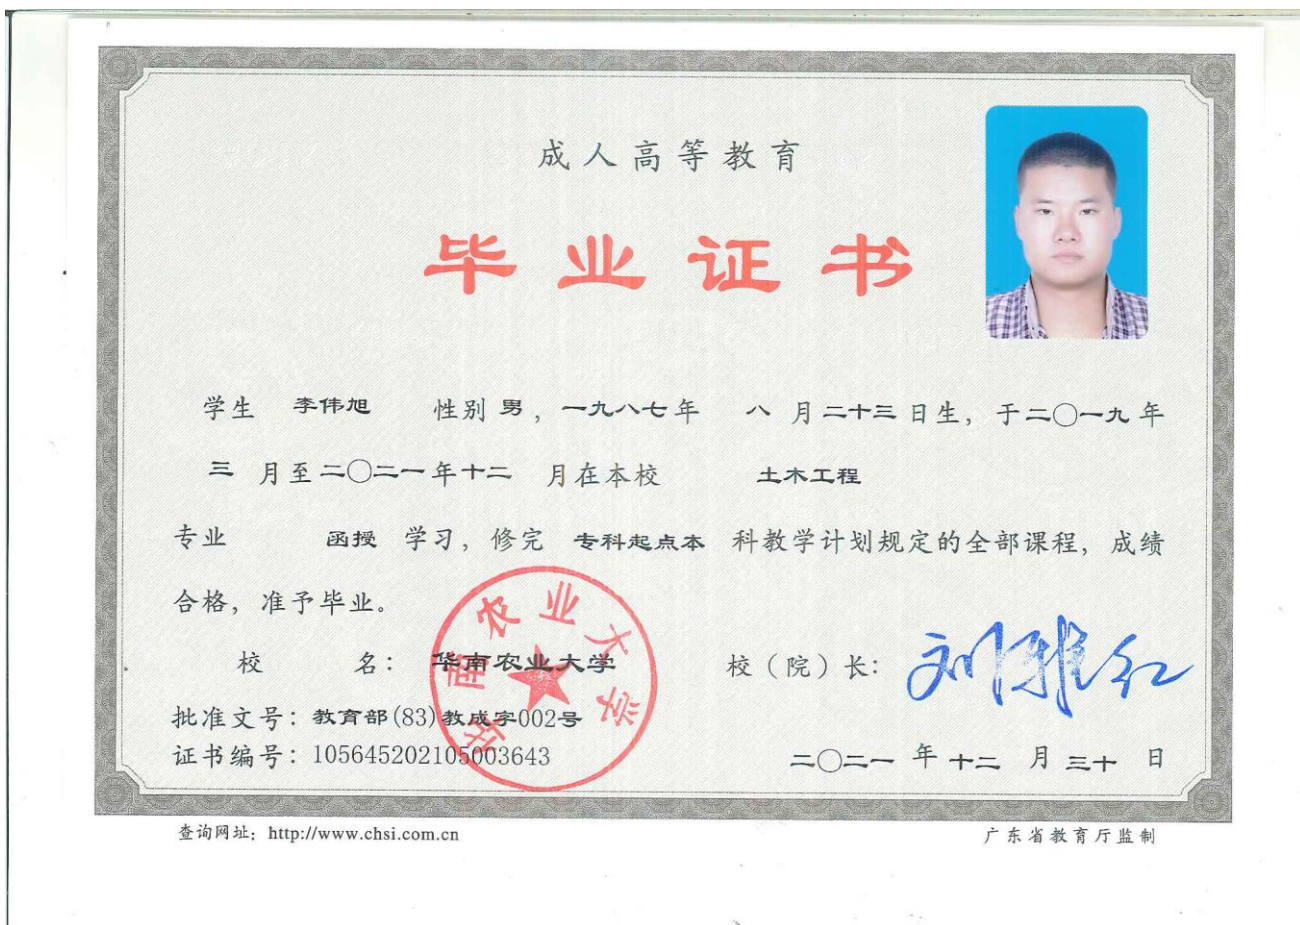 成人高等教育
毕业证书
学生 李伟旭 性别 男，一九八七年 八 月二十三日生，于二〇一九年
三 月至二〇二一年十二 月在本校 土木工程
专业 函授 学习，修完 专科起点本 科教学计划规定的全部课程，成绩
合格，准予毕业。
华南农业大学
校 名：华南农业大学 校（院）长：刘雅红
批准文号：教育部(83)教成字002号
证书编号：105645202105003643 二〇二一 年 十二 月 三十 日
查询网址：http://www.chsi.com.cn 广东省教育厅监制